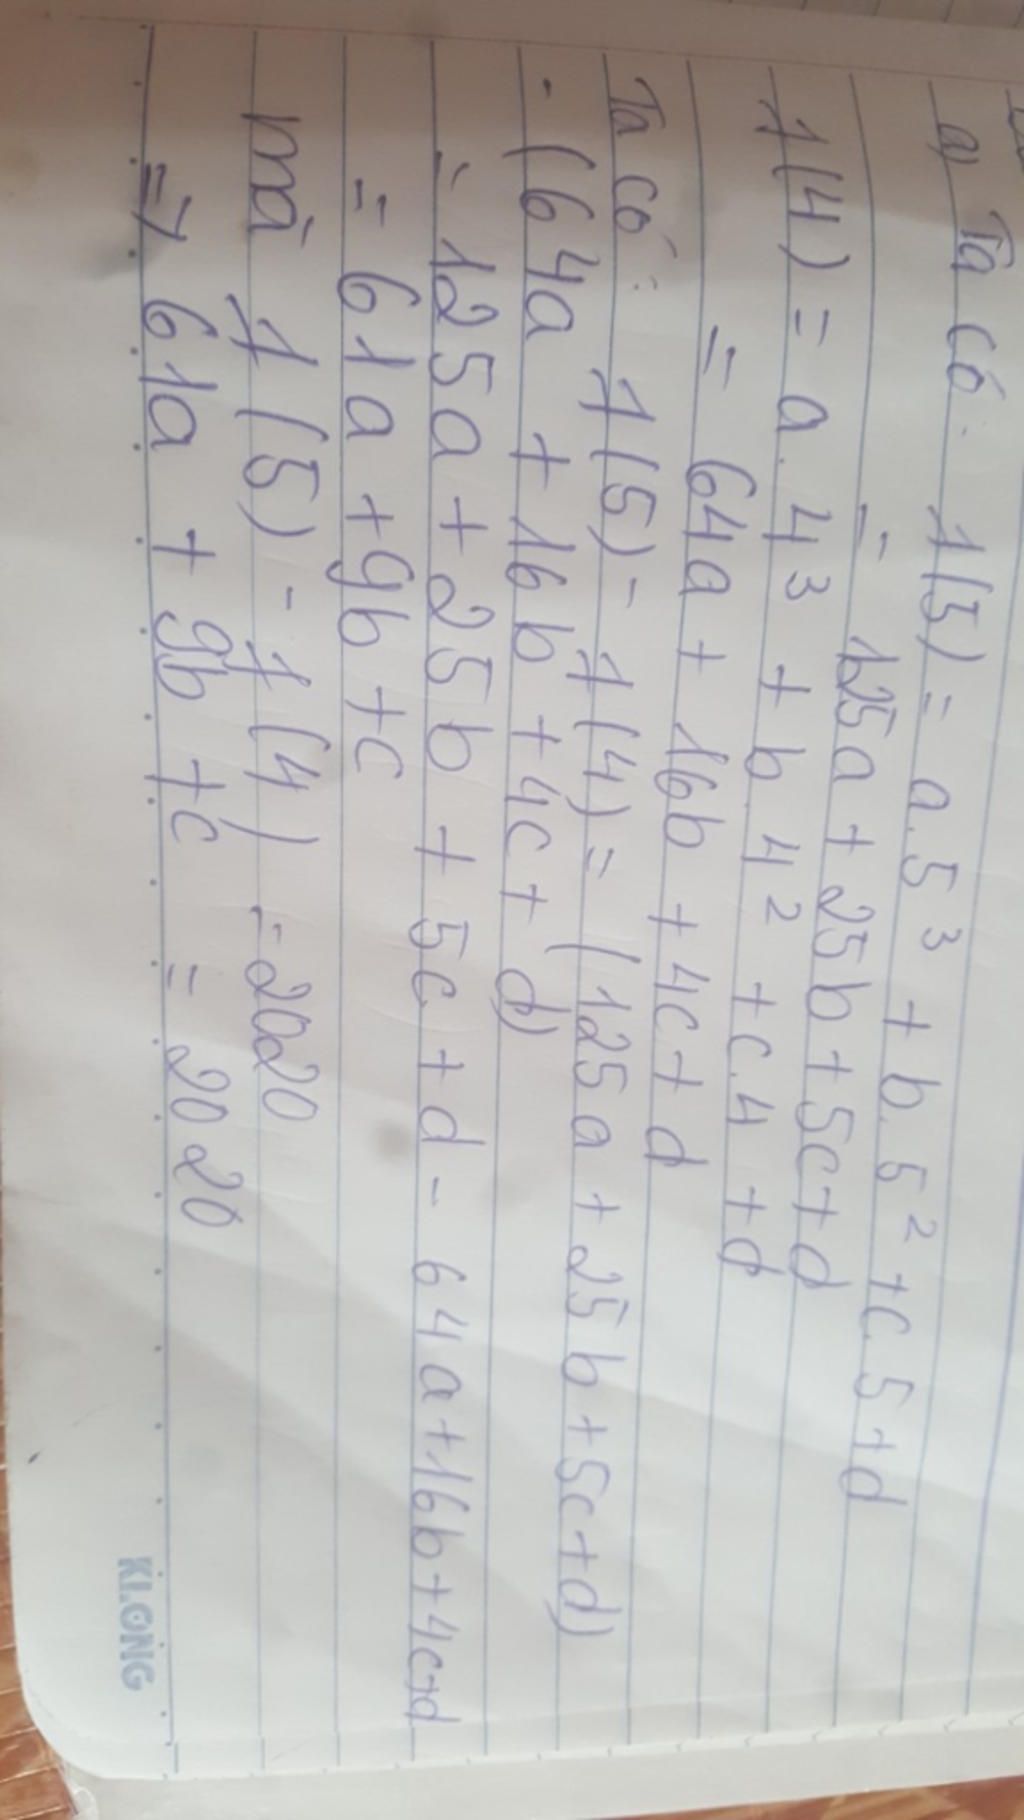 a) Ta có: f(5) = a.5³ + b.5² + c.5 + d
= 125a + 25b + 5c + d
f(4) = a.4³ + b.4² + c.4 + d
= 64a + 16b + 4c + d
Ta có: f(5) - f(4) = (125a + 25b + 5c + d)
- (64a + 16b + 4c + d)
= 125a + 25b + 5c + d - 64a + 16b + 4c + d
= 61a + 9b + c
mà f(5) - f(4) = 2020
=> 61a + 9b + c = 2020
KLONG